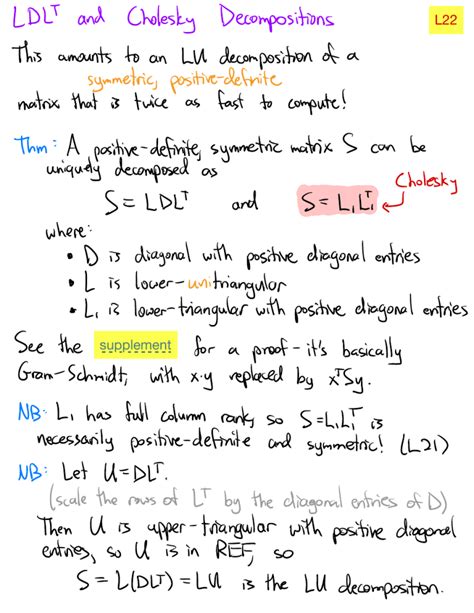 LDLᵀ and Cholesky Decompositions
L22
This amounts to an LU decomposition of a
symmetric, positive-definite
matrix that is twice as fast to compute!
Thm: A positive-definite, symmetric matrix S can be
uniquely decomposed as
S = LDLᵀ and S = L₁L₁ᵀ
Cholesky
where:
• D is diagonal with positive diagonal entries
• L is lower-unitriangular
• L₁ is lower-triangular with positive diagonal entries
See the supplement for a proof - it's basically
Gram-Schmidt, with x·y replaced by xᵀSy.
NB: L₁ has full column rank, so S=L₁L₁ᵀ is
necessarily positive-definite and symmetric! (L21)
NB: Let U=DLᵀ.
(scale the rows of Lᵀ by the diagonal entries of D)
Then U is upper-triangular with positive diagonal
entries, so U is in REF, so
S = L(DLᵀ) = LU is the LU decomposition.